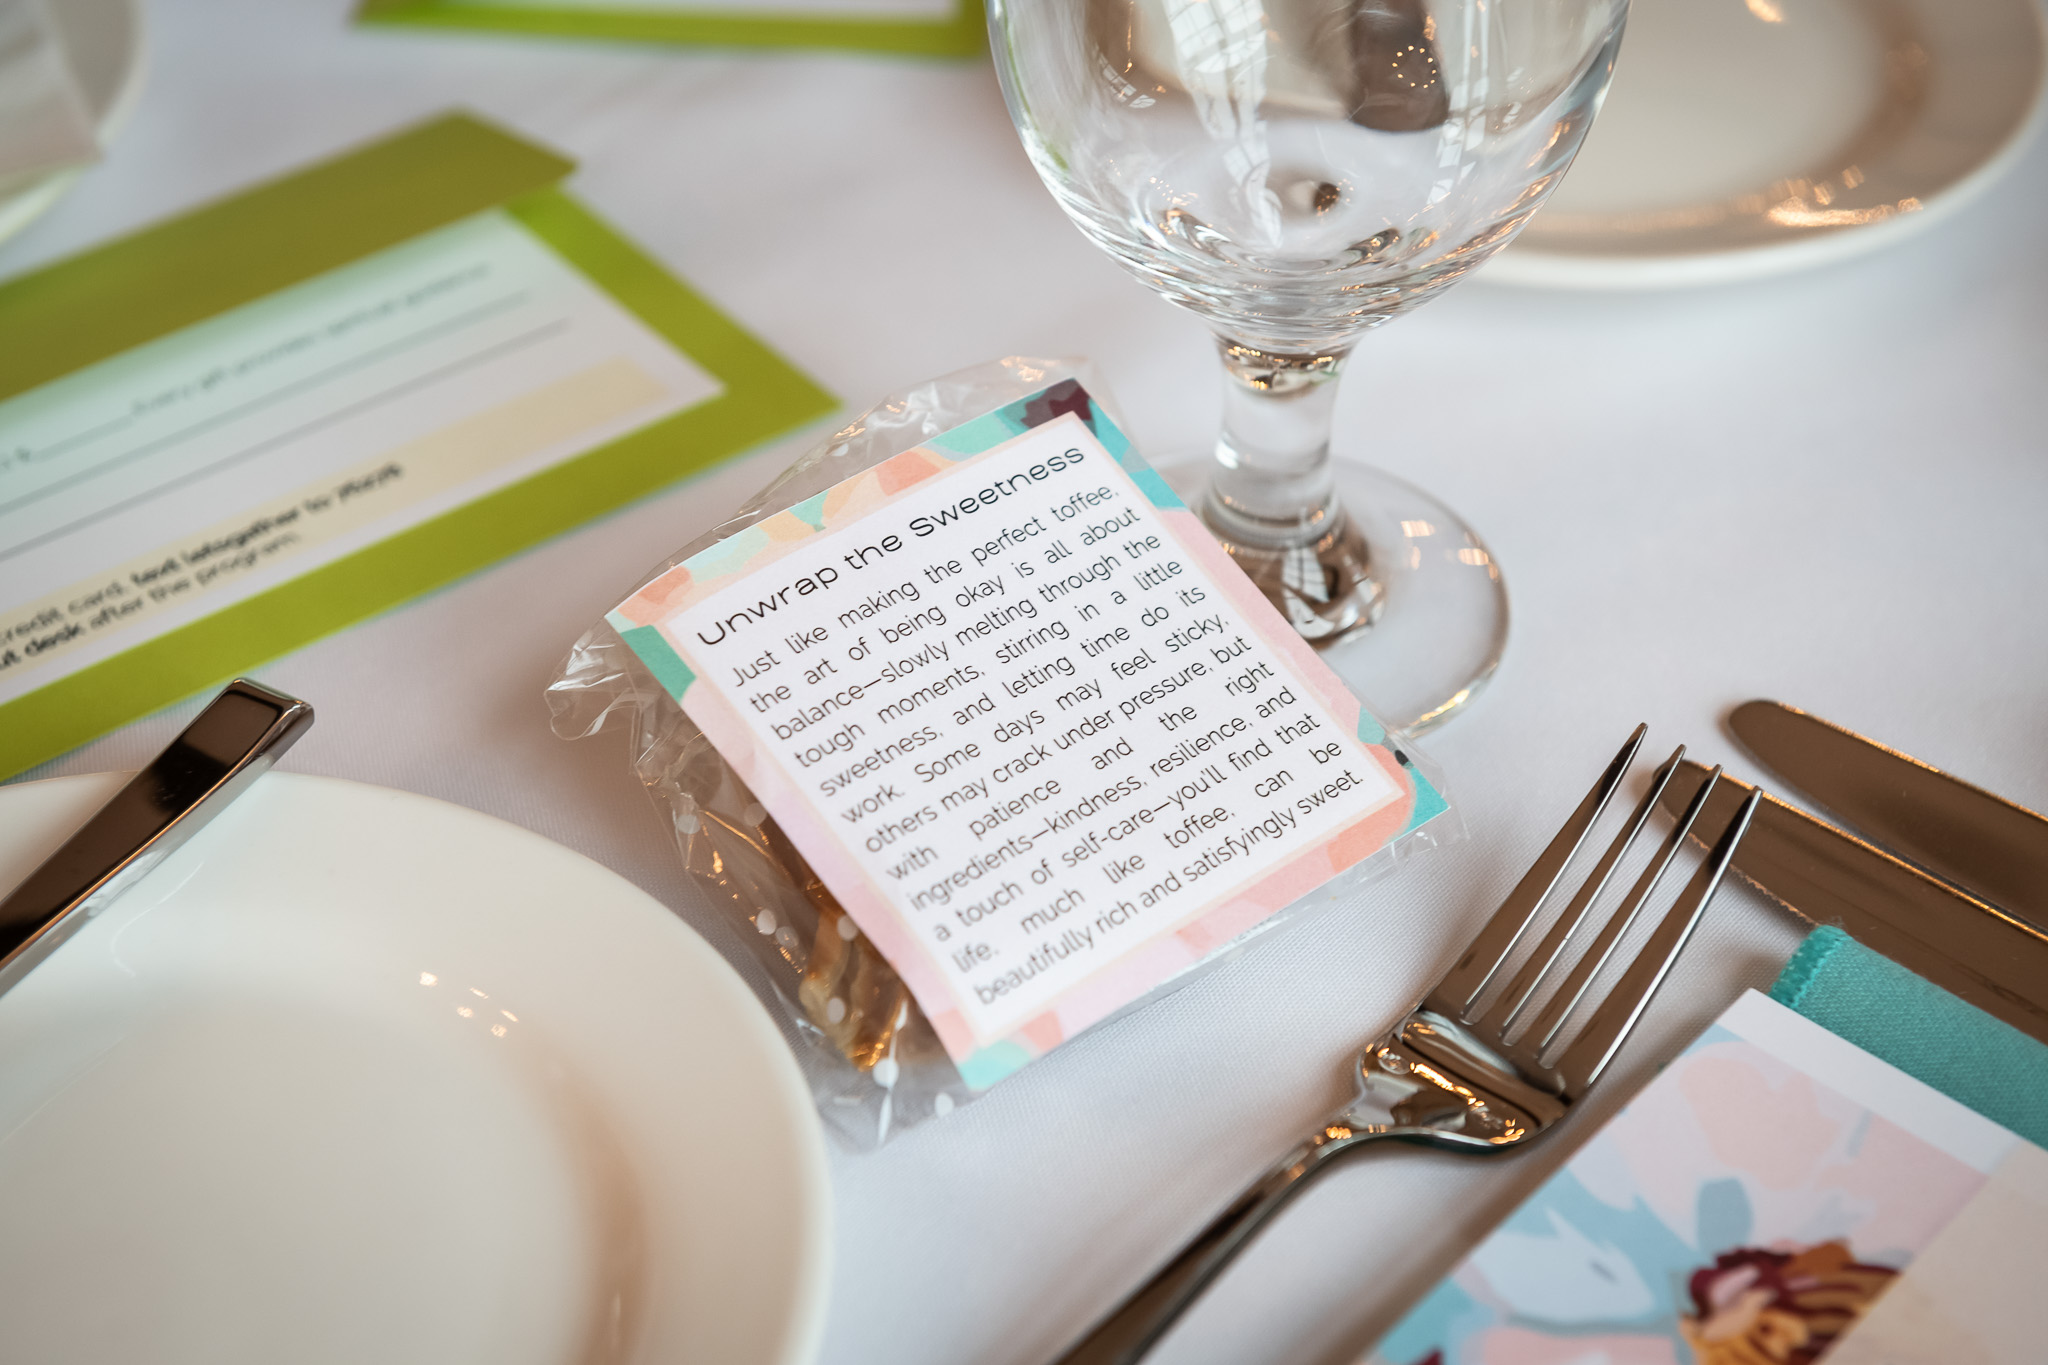 Unwrap the Sweetness
Just like making the perfect toffee,
the art of being okay is all about
balance—slowly melting through the
tough moments, stirring in a little
sweetness, and letting time do its
work. Some days may feel sticky,
others may crack under pressure, but
with patience and the right
ingredients—kindness, resilience, and
a touch of self-care—you'll find that
life, much like toffee, can be
beautifully rich and satisfyingly sweet.
credit card, text letsgether to
desk after the program.